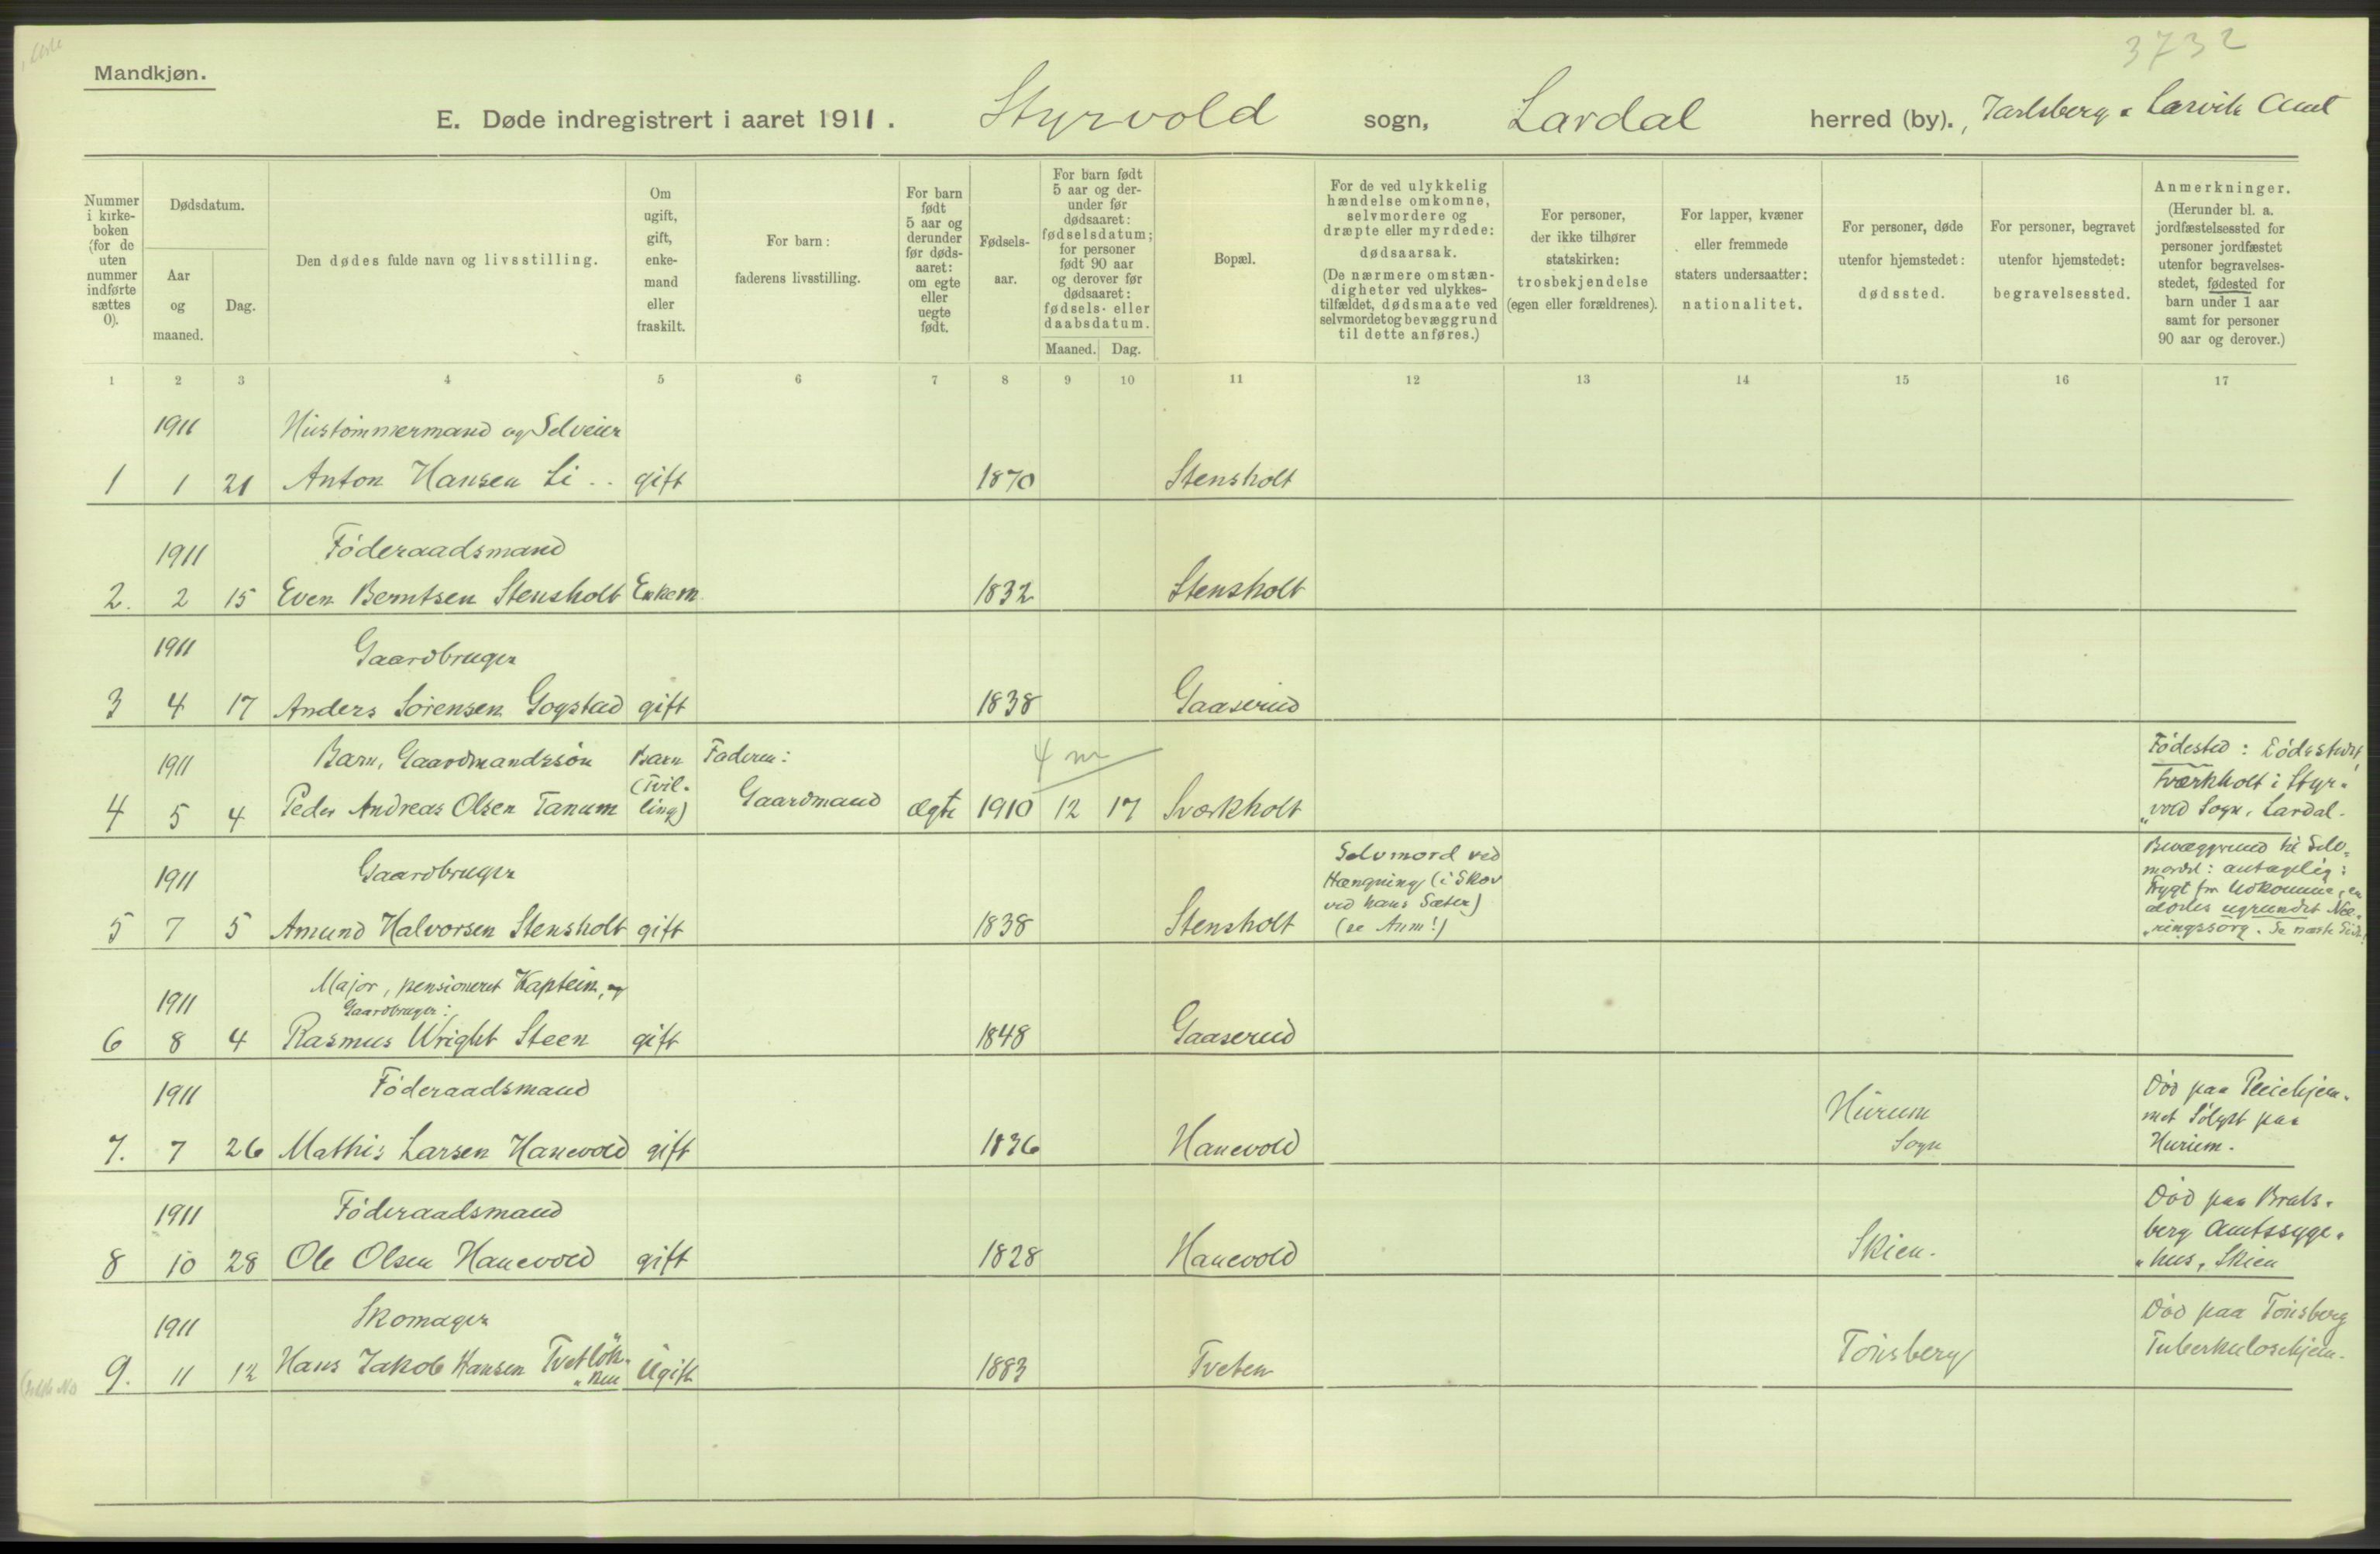 3732
Mandkjøn.
E. Døde indregistrert i aaret 1911. Styrvold sogn, Lardal herred (by)., Jarlsberg & Larvik Amt
Nummer
i kirke-
boken
(for de
uten
nummer
indførte
sættes
0).
Dødsdatum.
Aar
og
maaned.
Dag.
Den dødes fulde navn og livsstilling.
Om
ugift,
gift,
enke-
mand
eller
fraskilt.
For barn:
faderens livsstilling.
For barn
født
5 aar og
derunder
før døds-
aaret:
om egte
eller
uegte
født.
Fødsels-
aar.
For barn født
5 aar og der-
under før
dødsaaret:
fødselsdatum;
for personer
født 90 aar
og derover før
dødsaaret:
fødsels- eller
daabsdatum.
Maaned. Dag.
Bopæl.
For de ved ulykkelig
hændelse omkomne,
selvmordere og
dræpte eller myrdede:
dødsaarsak.
(De nærmere omstæn-
digheter ved ulykkes-
tilfældet, dødsmaate ved
selvmordet og bevæggrund
til dette anføres.)
For personer,
der ikke tilhører
statskirken:
trosbekjendelse
(egen eller forældrenes).
For lapper, kvæner
eller fremmede
staters undersaatter:
nationalitet.
For personer, døde
utenfor hjemstedet:
dødssted.
For personer, begravet
utenfor hjemstedet:
begravelsessted.
Anmerkninger.
(Herunder bl. a.
jordfæstelsessted for
personer jordfæstet
utenfor begravelses-
stedet, fødested for
barn under 1 aar
samt for personer
90 aar og derover.)
1 2 3 4 5 6 7 8 9 10 11 12 13 14 15 16 17
1911 Hustømmermand og Selveier
1 1 21 Anton Hansen Li .. gift 1870 Stensholt
1911 Föderaadsmand
2. 2 15 Even Berntsen Stensholt Enkem. 1832 Stensholt
1911 Gaardbruger
3 4 17 Anders Sörensen Gogstad gift 1838 Gaaserud
1911 Barn, Gaardmandssön Barn Faderen: 4 m
(Tvil-
4 5 4 Peder Andreas Olsen Tanum ling) Gaardmand ægte 1910 12 17 Sværkholt
Födested: Dödsstedet,
Sværkholt i Styr-
"vold Sogn, Lardal.
1911 Gaardbruger
5 7 5 Amund Halvorsen Stensholt gift 1838 Stensholt
Selvmord ved
Hængning (i Skov
ved hans Sæter)
(se Anm!)
Bevæggrund til Selv-
mordet: antagelig:
Frygt for Udkomme, en
aldeles ugrundet Næ-
"ringssorg. Se næste Side!
1911 Major, pensioneret Kaptein, og
Gaardbruger:
6 8 4 Rasmus Wright Steen gift 1848 Gaaserud
1911 Föderaadsmand
7. 7 26 Mathis Larsen Hanevold gift 1836 Hanevold
Hurum
Sogn
Död paa Pleiehjem-
met Sölyst paa
Hurum.
1911 Föderaadsmand
8 10 28 Ole Olsen Hanevold gift 1828 Hanevold
Skien.
Död paa Brats-
berg Amtssyge-
"hus, Skien
1911 Skomager
9. 11 12 Hans Jakob Hansen Tvetlök-
"ken Ugift 1883 Tveten
Tönsberg
Död paa Tönsberg
Tuberkulosehjem.